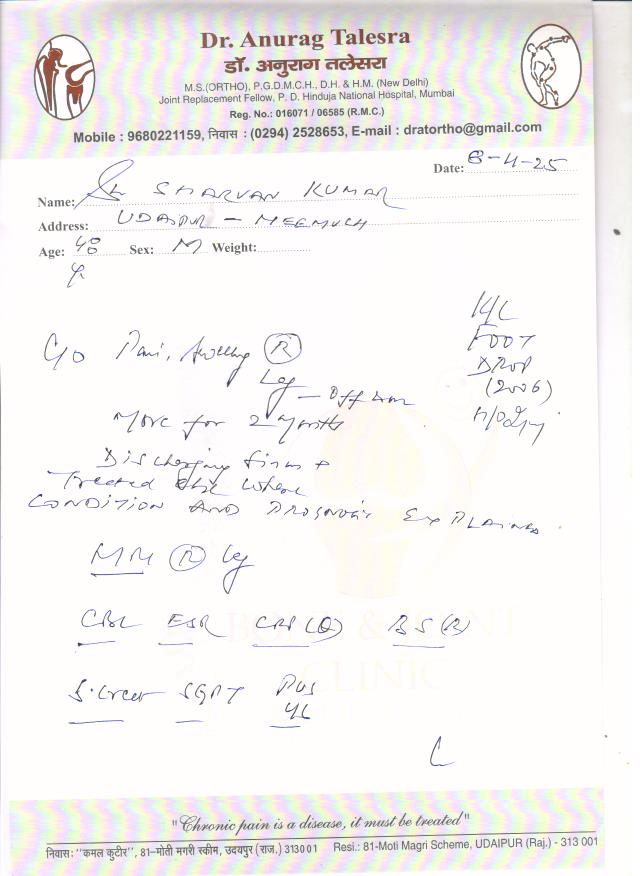 Dr. Anurag Talesra
डॉ. अनुराग तलेसरा
M.S.(ORTHO), P.G.D.M.C.H., D.H. & H.M. (New Delhi)
Joint Replacement Fellow, P. D. Hinduja National Hospital, Mumbai
Reg. No.: 016071 / 06585 (R.M.C.)
Mobile : 9680221159, निवास : (0294) 2528653, E-mail : dratortho@gmail.com
Date: 8-4-25
Name: SHARVAN KUMAR
Address: UDAIPUR - NEEMUCH
Age: 48 Sex: M Weight:
K/C
FOOT
DROP
(2006)
C/O Pain, Swelling (R)
Leg - Off & on
More for 2 Months
Discharging Sinus +
Treated else where
CONDITION AND PROGNOSIS EXPLAINED
(R) Leg
CBC ESR CRP (Q) BS (R)
S. Creat SGPT Pus
C
BONE & JOINT
CLINIC
"Chronic pain is a disease, it must be treated"
निवास: "कमल कुटीर", 81-मोती मगरी स्कीम, उदयपुर (राज.) 313001 Resi.: 81-Moti Magri Scheme, UDAIPUR (Raj.) - 313 001